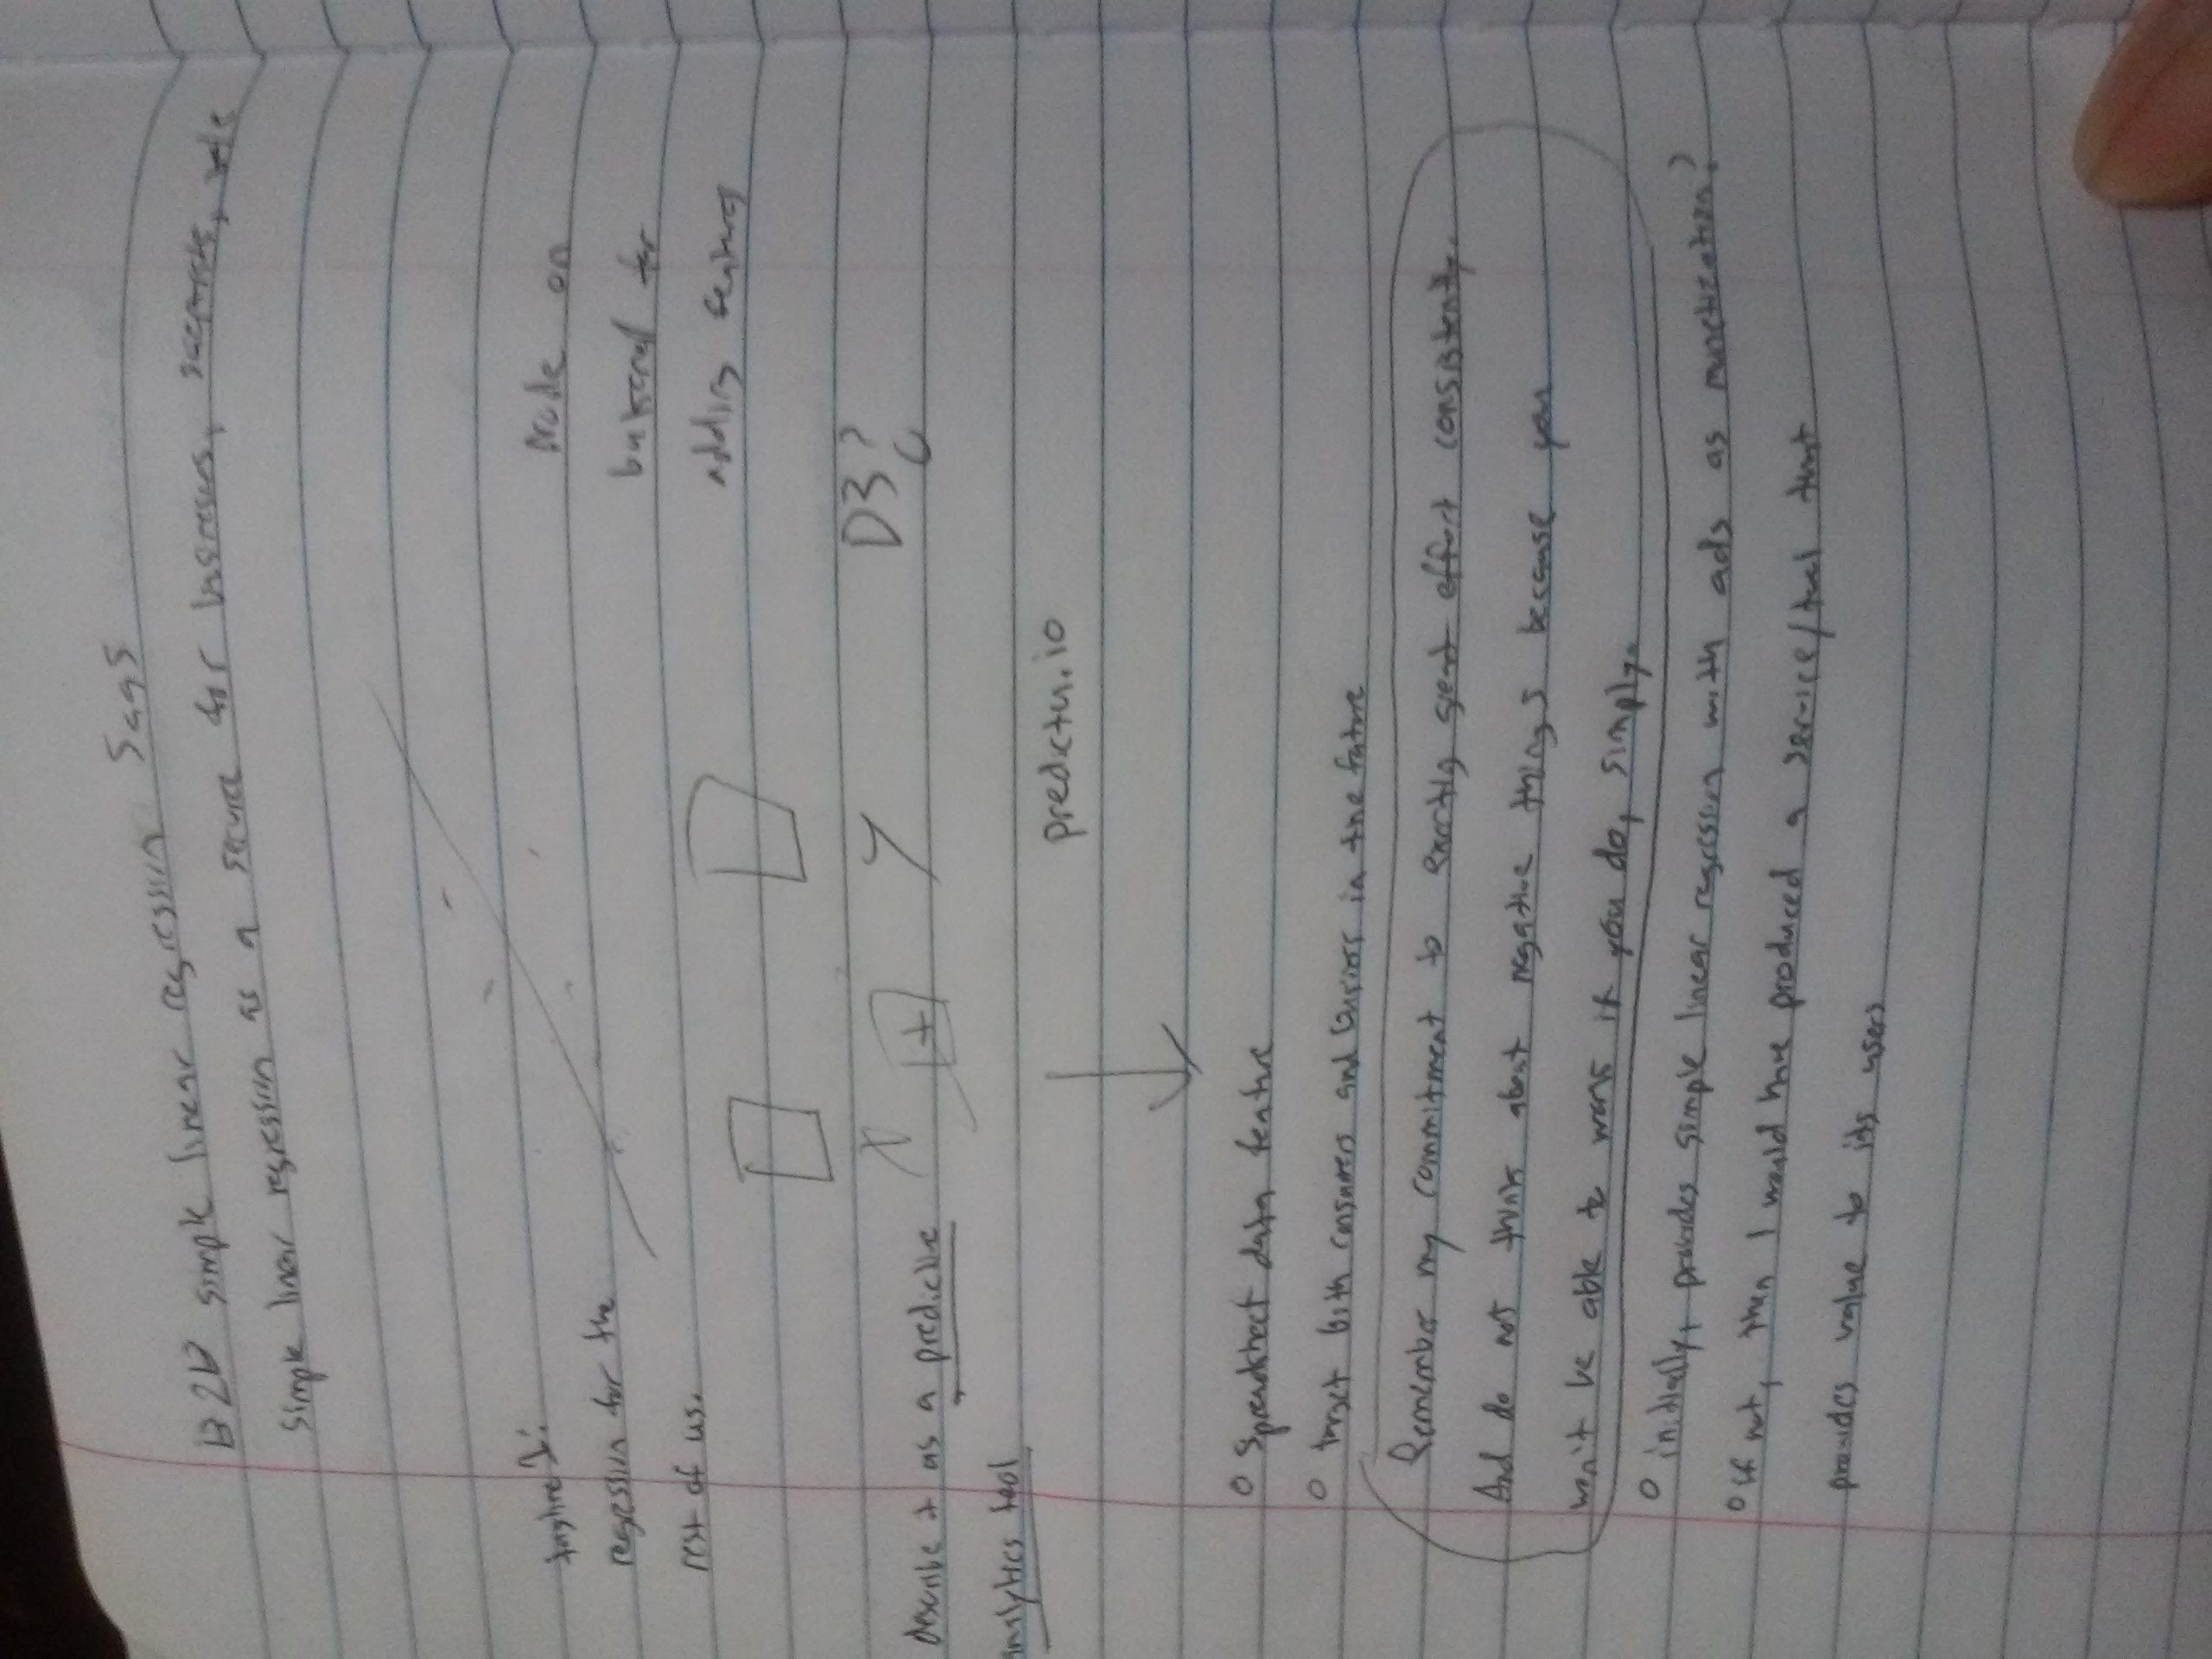 B2B simple linear regression Saas
simple linear regression as a service for businesses,
tagline?:
regression for the
rest of us.
node on
backend for
adding features
X
Y
+
D3?
describe it as a predictive
analytics tool
predictui.io
o spreadsheet data feature
o target both consumers and business in the future
Remember my commitment to exerting great effort consistently.
And do not think about negative things because you
won't be able to work if you do, simply.
o initially, provides simple linear regression with ads as monetization?
o if not, then I would have produced a service/tool that
provides value to its users